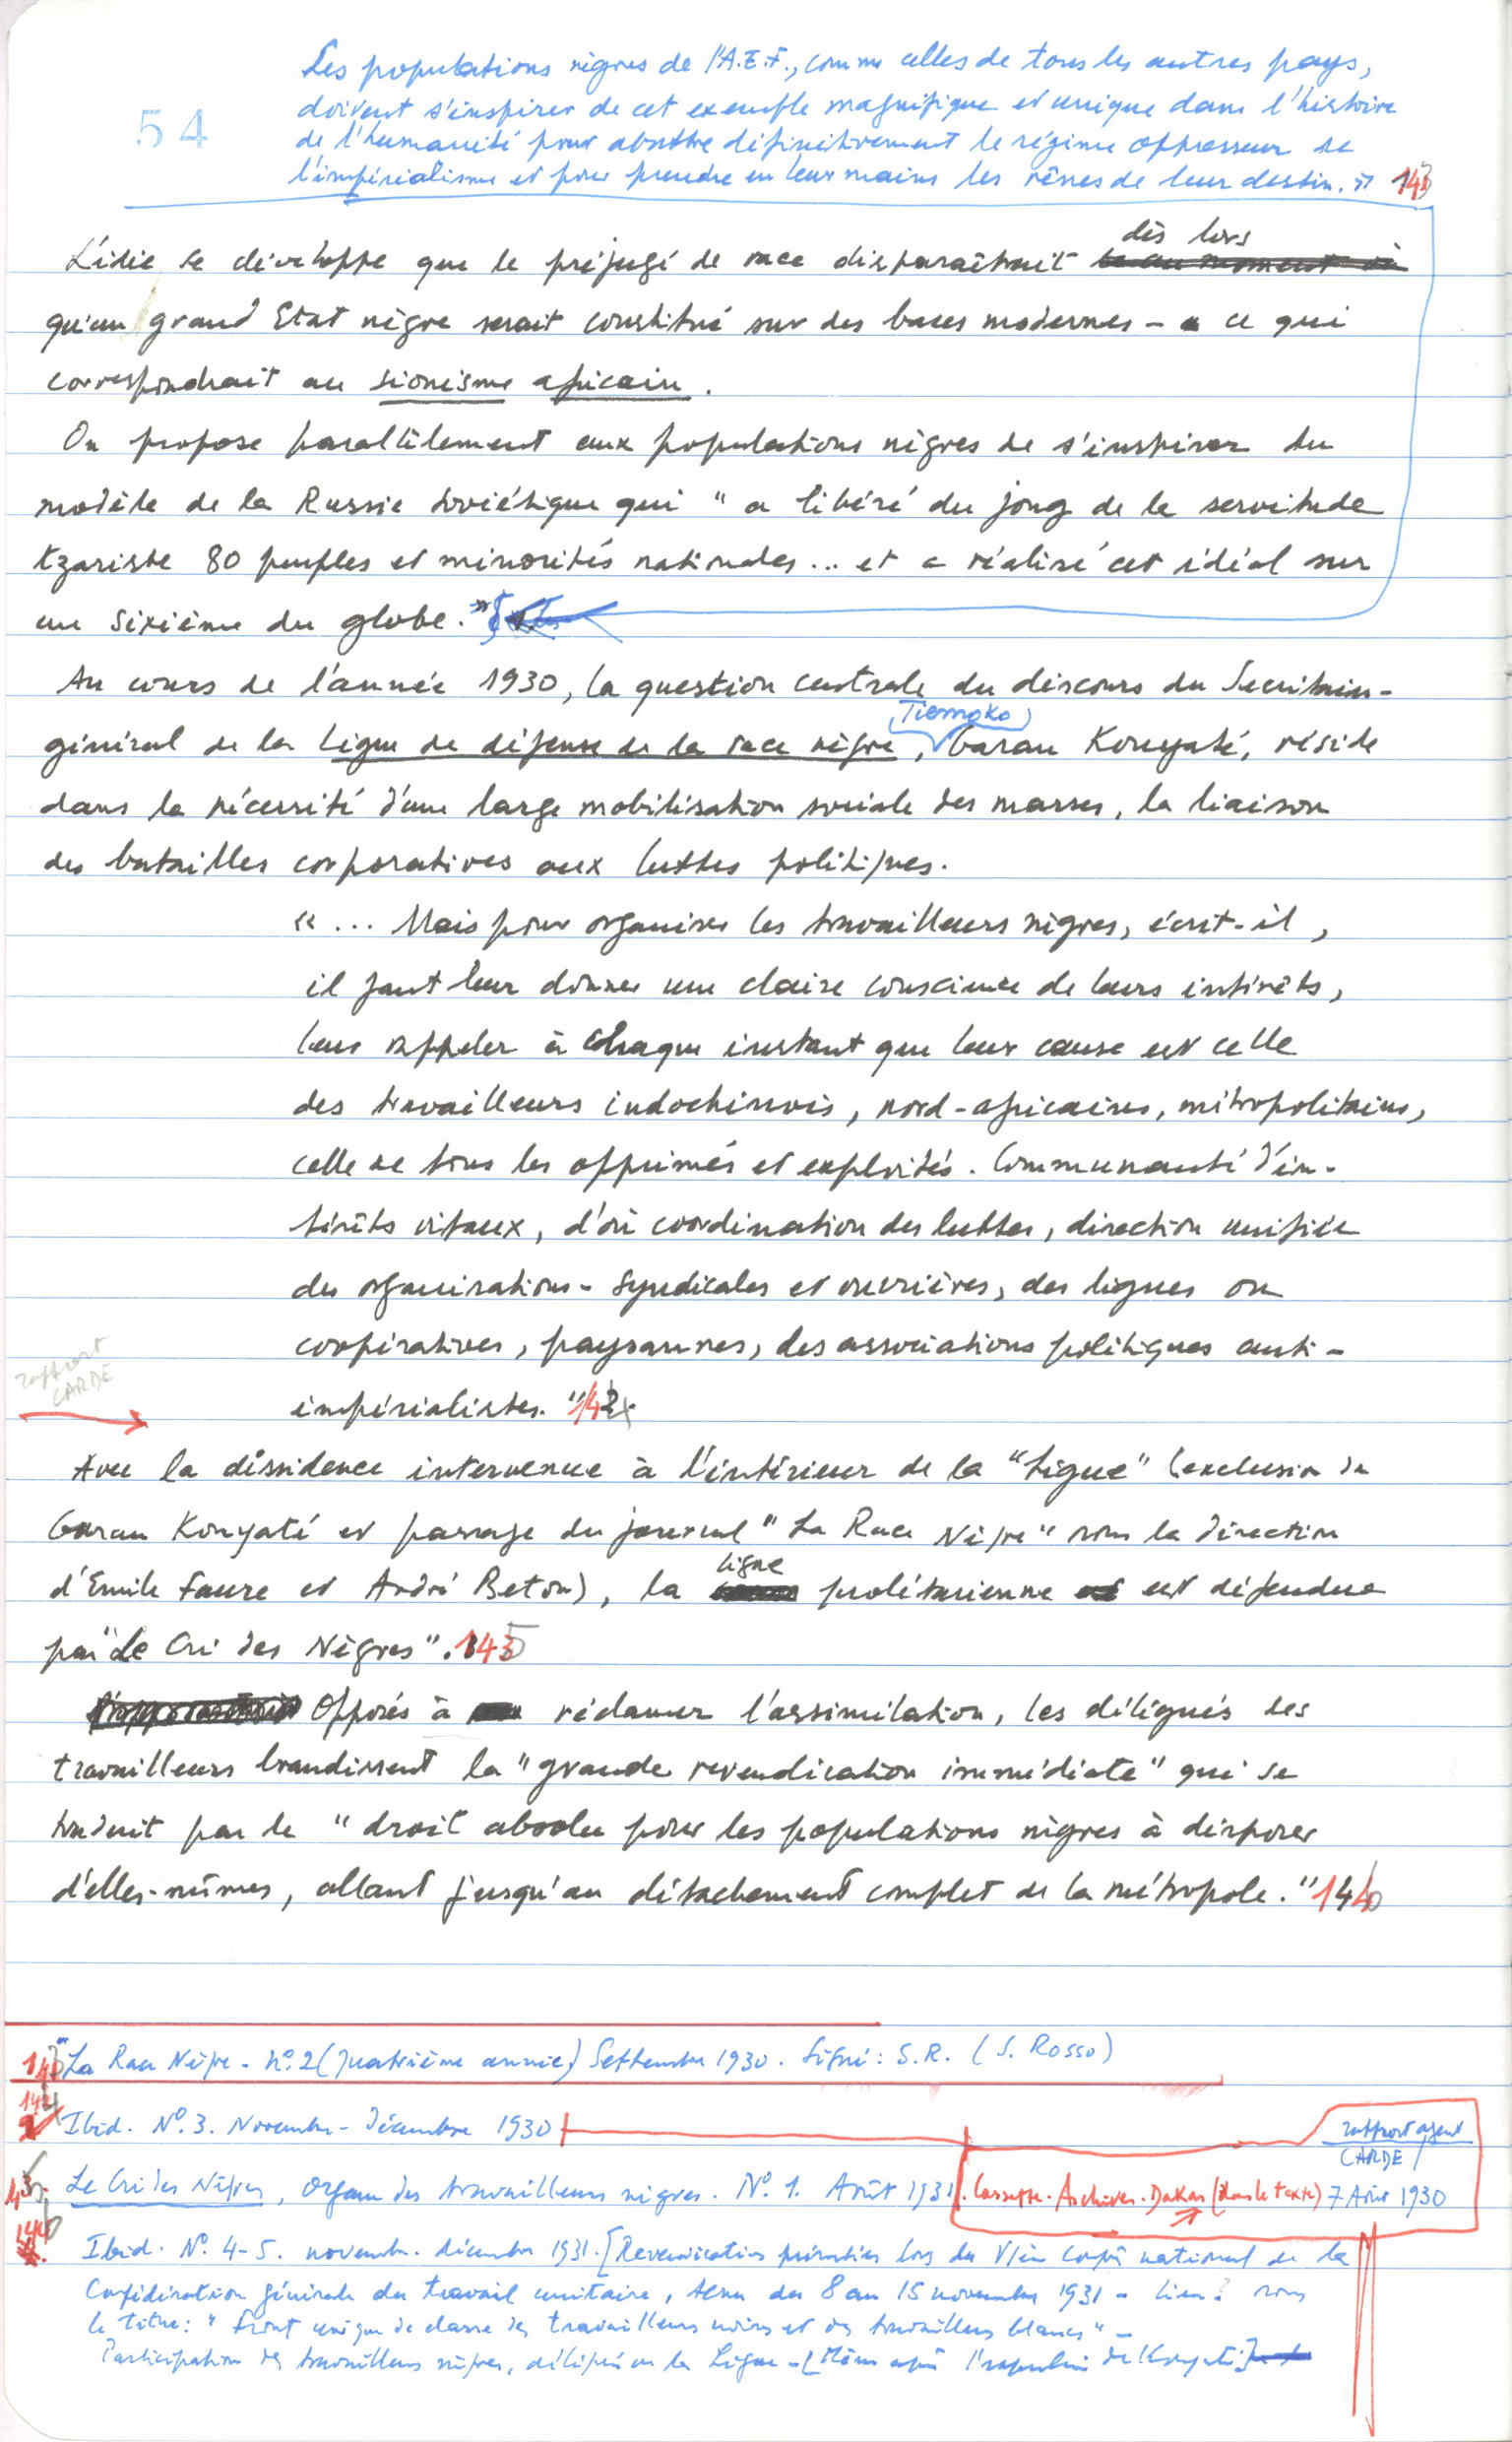 Les populations nègres de l'A.E.F., comme celles de tous les autres pays,
doivent s'inspirer de cet exemple magnifique et unique dans l'histoire
54
de l'humanité pour abattre définitivement le régime oppresseur de
l'impérialisme et pour prendre en leur mains les rênes de leur destin. » 143
dès lors
L'idée se développe que le préjugé de race disparaîtrait
qu'un grand Etat nègre serait constitué sur des bases modernes - ce qui
correspondrait au sionisme africain.
On propose parallèlement aux populations nègres de s'inspirer du
modèle de la Russie soviétique qui "a libéré du joug de la servitude
tzariste 80 peuples et minorités nationales... et a réalisé cet idéal sur
un sixième du globe."
Au cours de l'année 1930, la question centrale du discours du Secrétaire-
Tiemoko
général de la Ligue de défense de la race nègre, Garan Kouyaté, réside
dans la nécessité d'une large mobilisation sociale des masses, la liaison
des batailles corporatives aux luttes politiques.
"... Mais pour organiser les travailleurs nègres, écrit-il,
il faut leur donner une claire conscience de leurs intérêts,
leur rappeler à chaque instant que leur cause est celle
des travailleurs indochinois, nord-africains, métropolitains,
celle de tous les opprimés et exploités. Communauté d'in-
térêts vitaux, d'où coordination des luttes, direction unifiée
des organisations - syndicales et ouvrières, des ligues ou
coopératives, paysannes, des associations politiques anti-
rapport
CARDE
impérialistes." 14
Avec la dissidence intervenue à l'intérieur de la "Ligue" (exclusion de
Garan Kouyaté et passage du journal "La Race Nègre" sous la direction
ligne
d'Emile Faure et André Beton), la prolétarienne est défendue
par "Le Cri des Nègres". 145
Opposés à réclamer l'assimilation, les délégués des
travailleurs brandissent la "grande revendication immédiate" qui se
traduit par le "droit absolu pour les populations nègres à disposer
d'elles-mêmes, allant jusqu'au détachement complet de la métropole." 146
143 La Race Nègre - N°. 2 (quatrième année) Septembre 1930. Signé: S.R. (S. Rosso)
144 Ibid. N°. 3. Novembre - Décembre 1930
rapport agent
CARDE
145 Le Cri des Nègres, organe des travailleurs nègres. N°. 1. Août 1931. Cassette. Archives. Dakar (dans le texte) 7 Août 1930
146 Ibid. N°. 4-5. novembre. décembre 1931. [Revendications présentées lors du VIè Congrès national de la
Confédération générale du travail unitaire, tenu du 8 au 15 novembre 1931 - lieu? sous
le titre: "Front unique de classe des travailleurs noirs et des travailleurs blancs" -
Participation des travailleurs nègres, délégués de la Ligue - [Même après l'expulsion de Kouyaté]